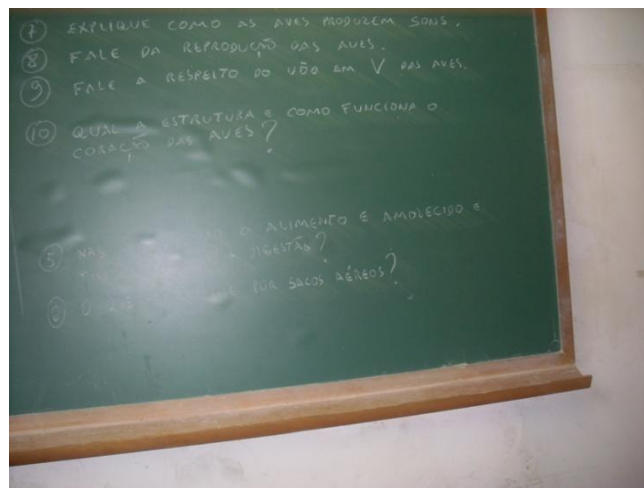 7 EXPLIQUE COMO AS AVES PRODUZEM SONS.
8 FALE DA REPRODUÇÃO DAS AVES.
9 FALE A RESPEITO DO VÔO EM V DAS AVES.
10 QUAL A ESTRUTURA E COMO FUNCIONA O
CORAÇÃO DAS AVES?
5 NAS O ALIMENTO E AMOLECIDO E
DIGESTÃO?
6 O POR SACOS AÉREOS?